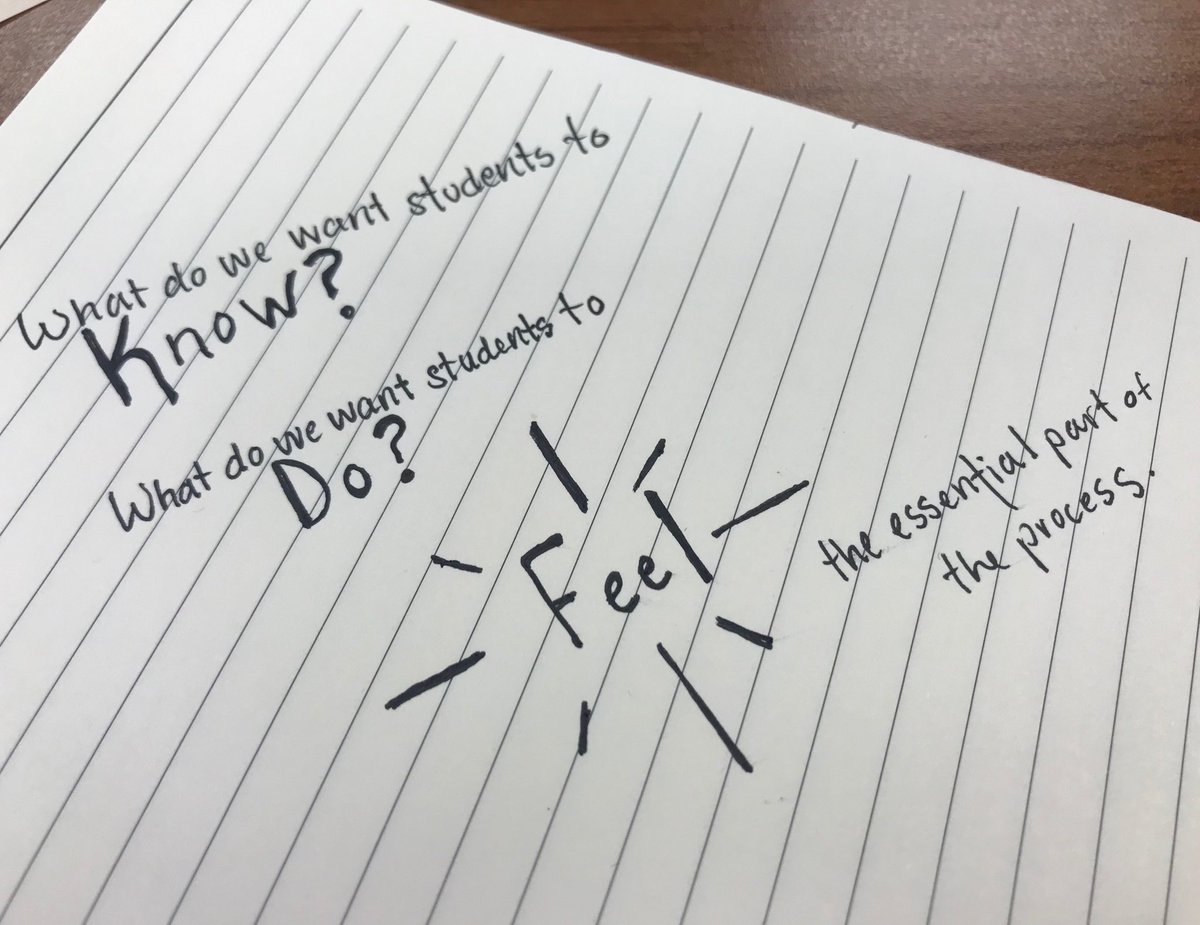 What do we want students to
Know?
What do we want students to
Do?
Feel
the essential part of
the process.